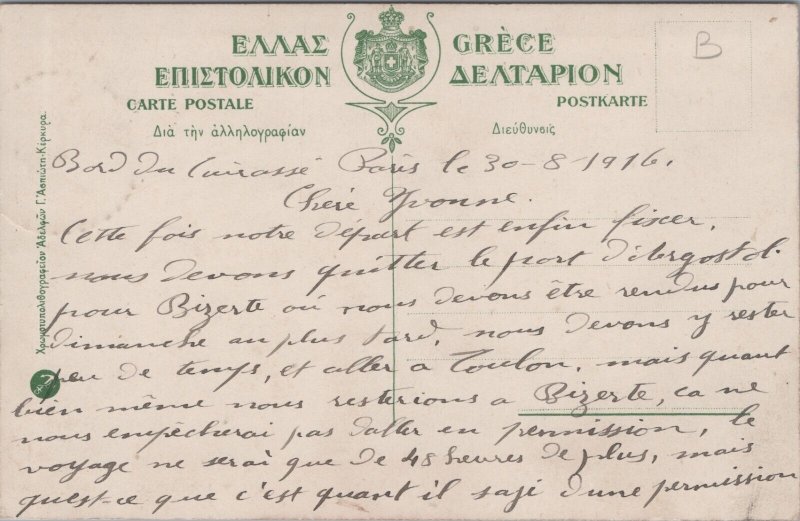 ΕΛΛΑΣ GRÈCE
ΕΠΙΣΤΟΛΙΚΟΝ ΔΕΛΤΑΡΙΟΝ
CARTE POSTALE POSTKARTE
Διὰ τὴν ἀλληλογραφίαν Διεύθυνσις
B
Χρωματυπολιθογραφεῖον Ἀδελφῶν Γ. Ἀσπιώτη-Κέρκυρα.
Bord du Cuirassé Paris le 30-8-1916.
Chère Yvonne.
Cette fois notre départ est enfin fixer,
nous devons quitter le port d'Argostoli
pour Bizerte où nous devons être rendus pour
dimanche au plus tard, nous devons y rester
peu de temps, et aller a Toulon, mais quant
bien même nous resterions a Bizerte, ca ne
nous empêcherai pas d'aller en permission, le
voyage ne serai que de 48 heures de plus, mais
qu'est-ce que c'est quant il sagi d'une permission